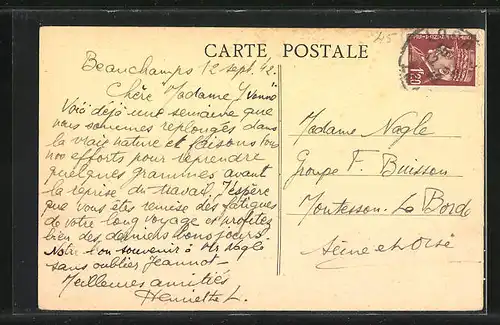 45
CARTE POSTALE
1F20
Beauchamps 12 sept. 42.
Chère Madame Yvonne
Voici déjà une semaine que
nous sommes replongés dans
la vraie nature et faisons tous
nos efforts pour reprendre
quelques grammes avant
la reprise du travail. J'espère
que vous êtes remise des fatigues
de votre long voyage et profitez
bien des derniers bons jours.
Notre bon souvenir à Mr Nagle
sans oublier Jeannot.
Meilleures amitiés
Henriette L.
Madame Nagle
Groupe F. Buisson
Montesson. La Borde
Seine et Oise